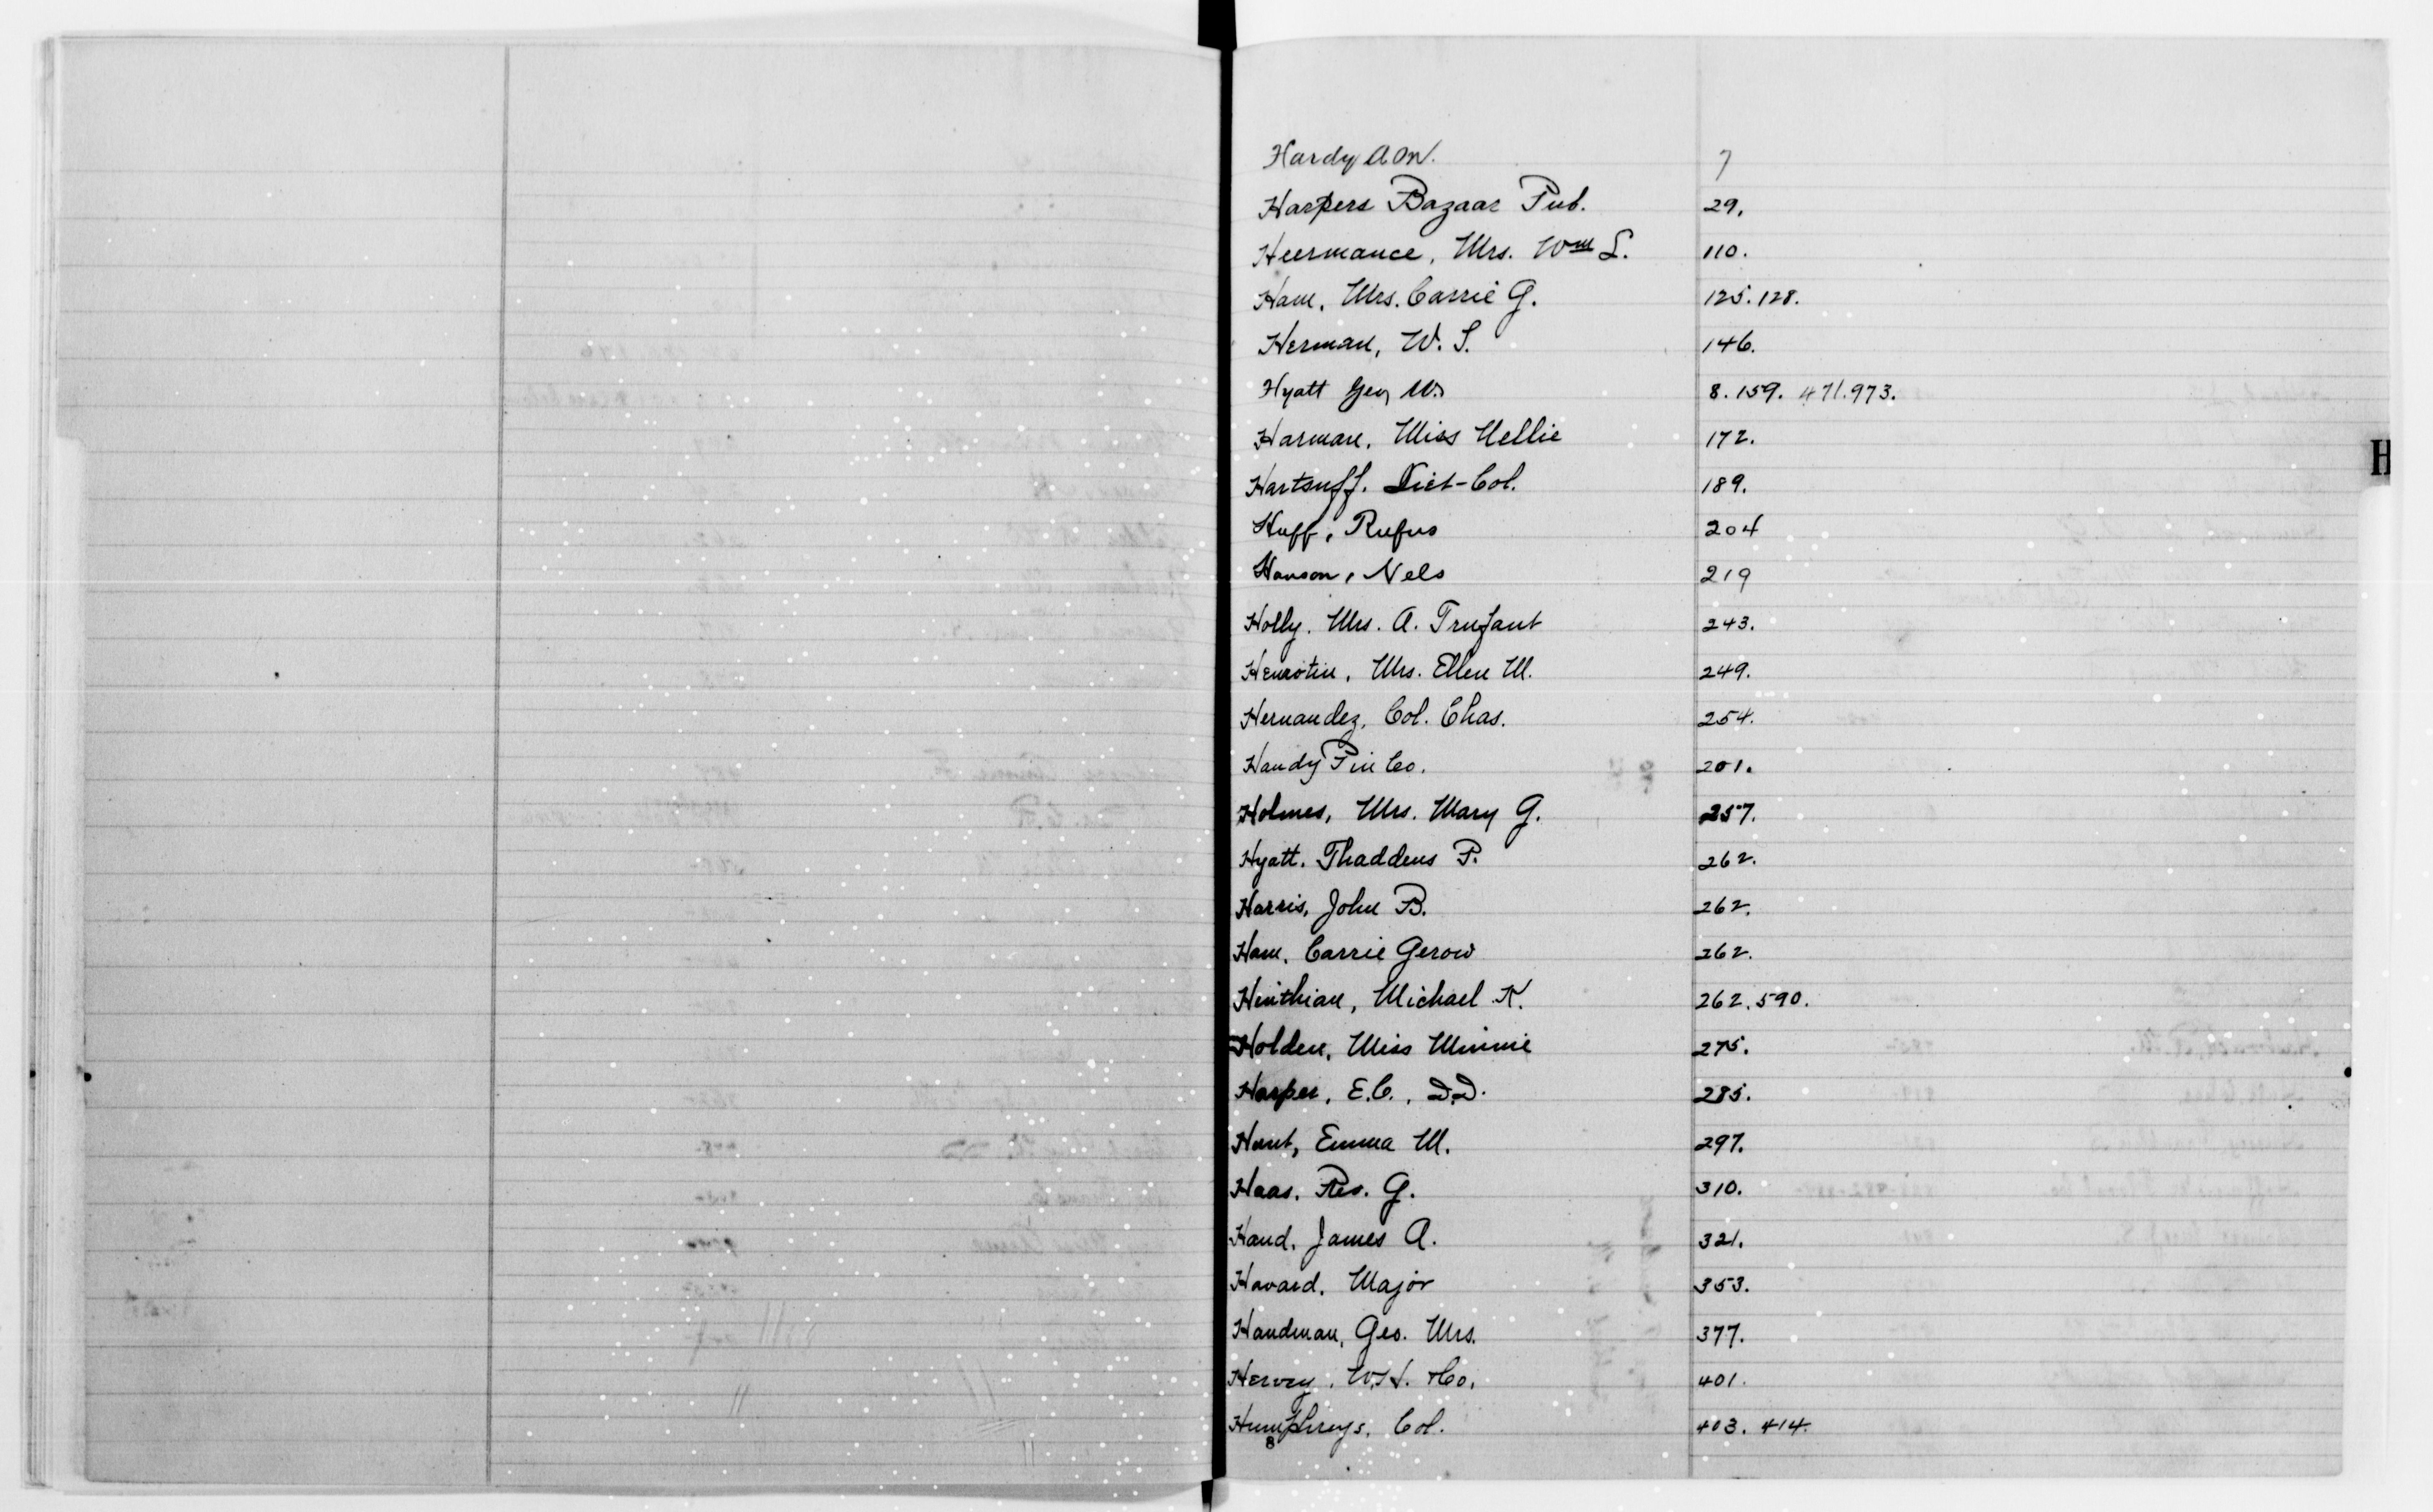 Hardy A.M. 7
Harpers Bazaar Pub. 29.
Heermance, Mrs. Wm L. 110.
Ham, Mrs. Carrie G. 125. 128.
Herman, W. S. 146.
Hyatt Geo W. 8. 159. 471. 973.
Harman, Miss Nellie 172.
Hartsuff. Liet-Col. 189.
Huff, Rufus 204
Hanson, Nels 219
Holly. Mrs. A. Trufant 243.
Henrotin, Mrs. Ellen M. 249.
Hernandez, Col. Chas. 254.
Handy Pin Co. 201.
Holmes, Mrs. Mary G. 257.
Hyatt. Thaddeus P. 262.
Harris, John B. 262.
Ham, Carrie Gerow 262.
Michael K. 262. 590.
Holden, Miss Minnie 275.
Harper, E.C., D.D. 285.
Hunt, Emma M. 297.
Haas, Rev. G. 310.
Hand, James A. 321.
Havard, Major 353.
Handman, Geo. Mrs. 377.
Hervey, W.H. & Co. 401.
Humphreys, Col. 403. 414.
8
H